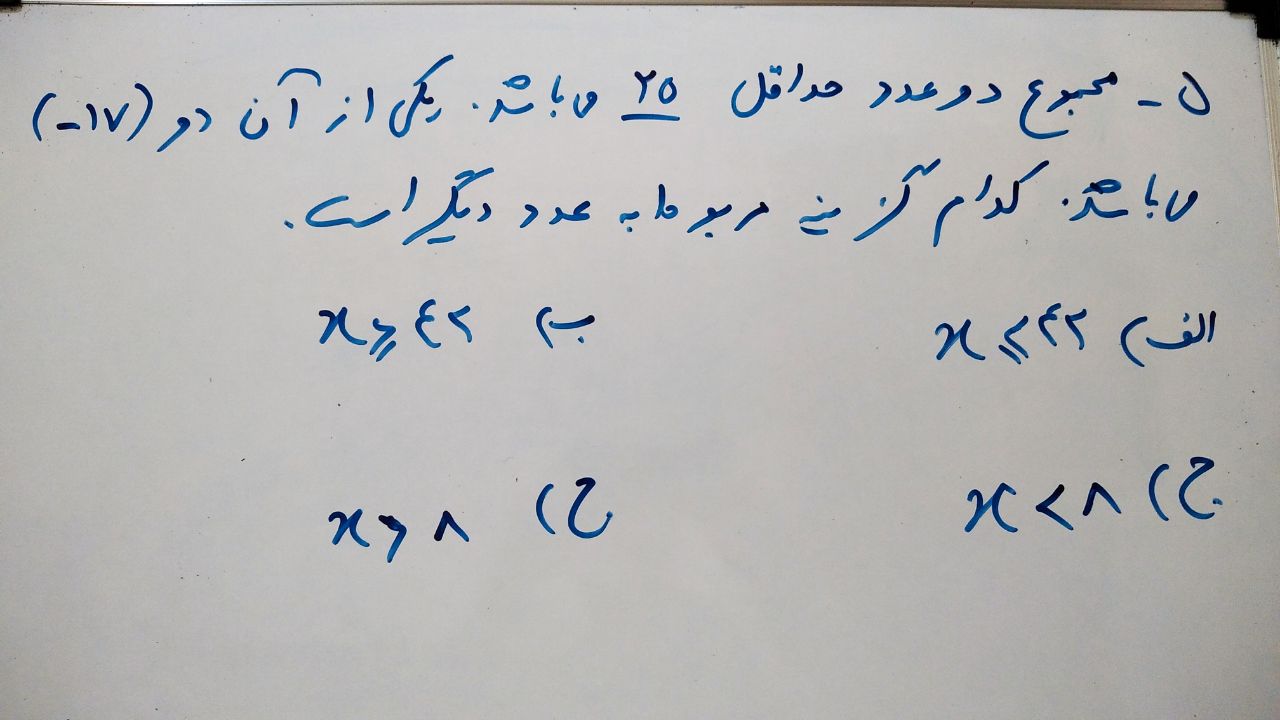 ۵- مجموع دو عدد حداقل ۲۵ می باشد. یکی از آن دو (۱۷-)
می باشد. کدام گزینه مربوط به عدد دیگر است.
الف) x ⩽ ۴۲ ب) x ⩾ ۴۲
ج) x < ۸ ح) x > ۸